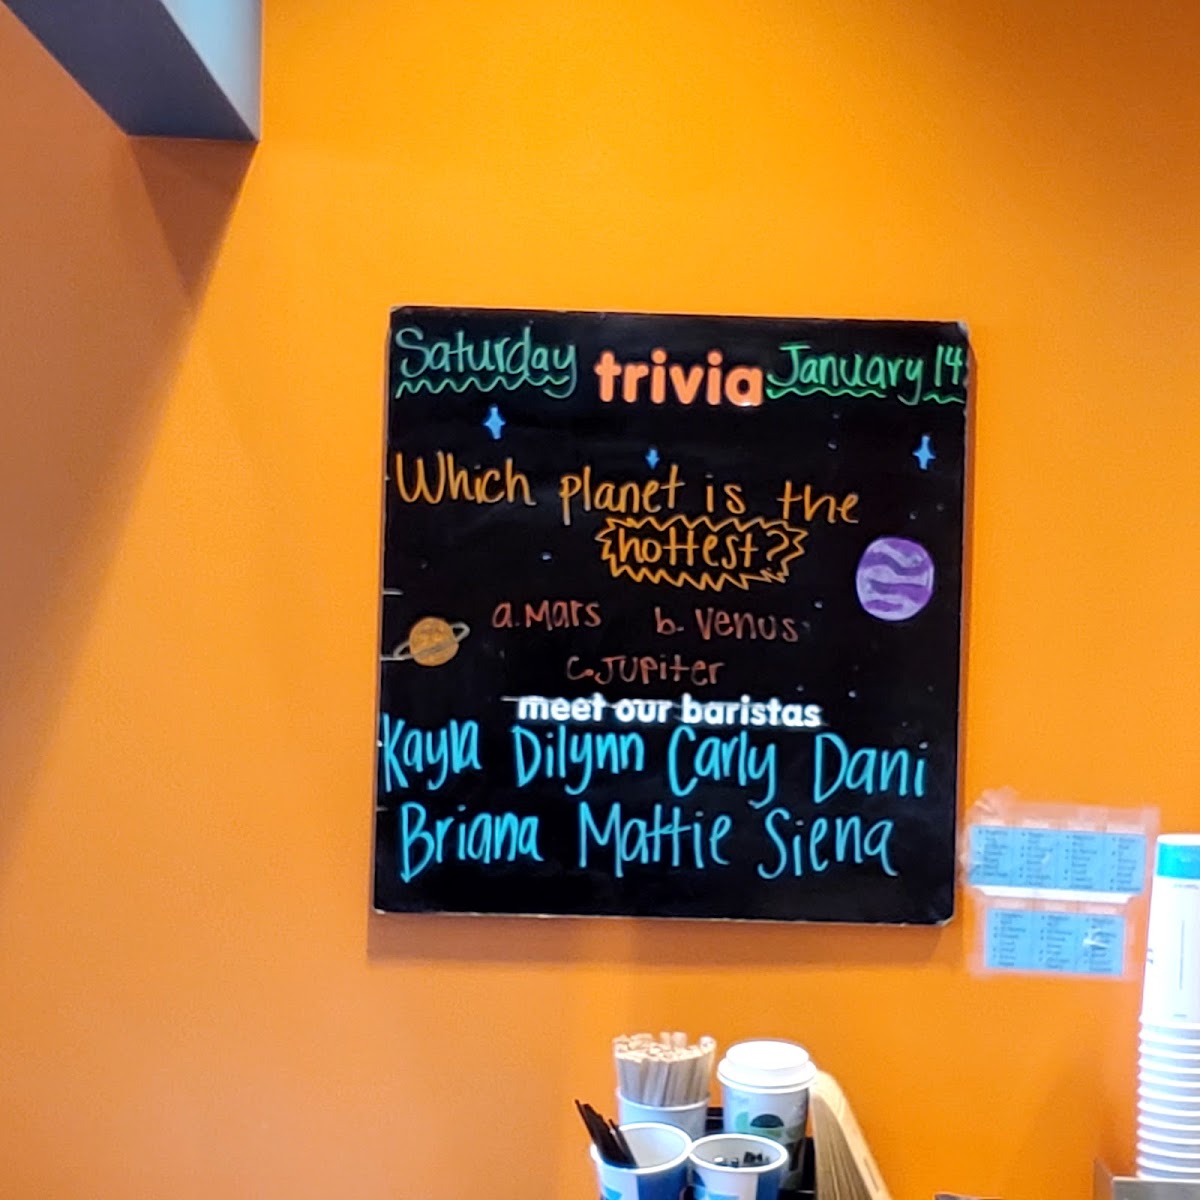 Saturday trivia January 14
Which planet is the
hottest?
a. Mars b. Venus
c. Jupiter
meet our baristas
Kayla Dilynn Carly Dani
Briana Mattie Siena